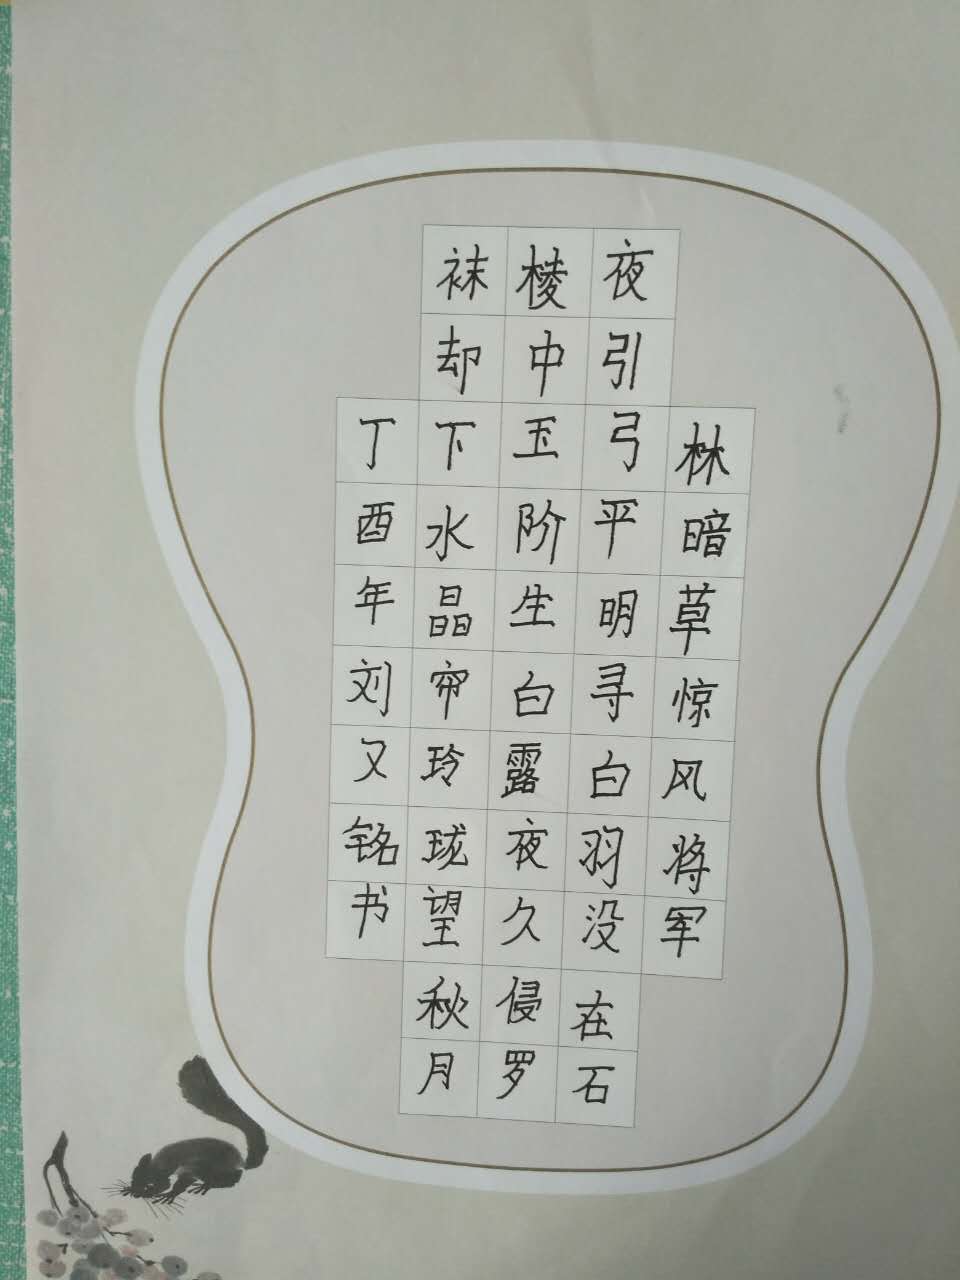 林暗草惊风将军
夜引弓平明寻白羽没在石
棱中玉阶生白露夜久侵罗
袜却下水晶帘玲珑望秋月
丁酉年刘又铭书